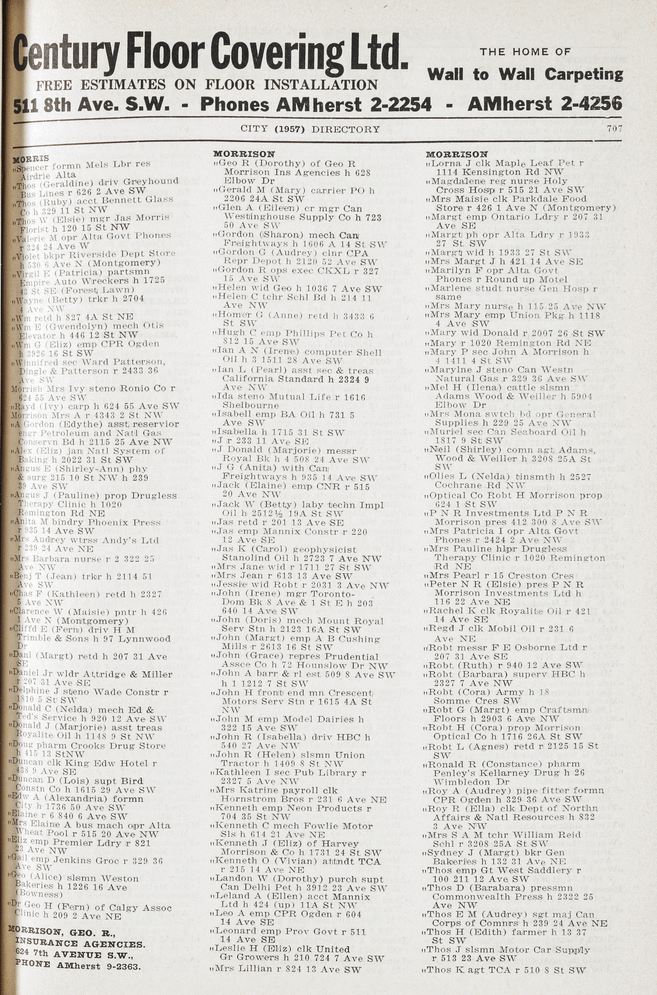 Century Floor Covering Ltd.
THE HOME OF
Wall to Wall Carpeting
FREE ESTIMATES ON FLOOR INSTALLATION
511 8th Ave. S.W. - Phones AMherst 2-2254 - AMherst 2-4256
CITY (1957) DIRECTORY
707
MORRIS
"Spencer formn Mels Lbr res
Airdrie Alta
"Thos (Geraldine) driv Greyhound
Bus Lines r 626 2 Ave SW
"Thos (Ruby) acct Bennett Glass
Co h 329 11 St NW
"Thos W (Elsie) mgr Jas Morris
Florist h 120 15 St NW
"Valerie M opr Alta Govt Phones
r 324 24 Ave W
"Violet bkpr Riverside Dept Store
h 530 6 Ave N (Montgomery)
"Virgil E (Patricia) partsmn
Empire Auto Wreckers h 1725
43 St SE (Forest Lawn)
"Wayne (Betty) trkr h 2704
4 Ave NW
"Wm retd h 827 4A St NE
"Wm E (Gwendolyn) mech Otis
Elevator h 446 12 St NW
"Wm G (Eliz) emp CPR Ogden
h 3926 16 St SW
"Winnifred sec Ward Patterson,
Dingle & Patterson r 2433 36
Ave SW
Morrish Mrs Ivy steno Ronio Co r
624 55 Ave SW
"Rayd (Ivy) carp h 624 55 Ave SW
Morrison Mrs A r 4343 2 St NW
"A Gordon (Edythe) asst reservior
engr Petroleum and Natl Gas
Conservn Bd h 2115 25 Ave NW
"Alex (Eliz) jan Natl System of
Baking h 2022 31 St SW
"Angus E (Shirley-Ann) phy
& surg 215 10 St NW h 239
39 Ave SW
"Angus J (Pauline) prop Drugless
Therapy Clinic h 1020
Remington Rd NE
"Anita M bindry Phoenix Press
r 935 14 Ave SW
"Mrs Audrey wtrss Andy's Ltd
r 239 24 Ave NE
"Mrs Barbara nurse r 2 322 25
Ave NW
"Benj T (Jean) trkr h 2114 51
Ave SW
"Chas F (Kathleen) retd h 2327
5 Ave NW
"Clarence W (Maisie) pntr h 426
1 Ave N (Montgomery)
"Cliffd E (Fern) driv H M
Trimble & Sons h 97 Lynnwood
Dr
"Danl (Margt) retd h 207 31 Ave
SE
"Daniel Jr wldr Attridge & Miller
r 207 31 Ave SE
"Delphine J steno Wade Constr r
1810 5 St SW
"Donald C (Nelda) mech Ed &
Ted's Service h 920 12 Ave SW
"Donald J (Marjorie) asst treas
Royalite Oil h 1148 9 St NW
"Doug pharm Crooks Drug Store
h 415 13 StNW
"Duncan clk King Edw Hotel r
438 9 Ave SE
"Duncan D (Lois) supt Bird
Constn Co h 1615 29 Ave SW
"Edw A (Alexandria) formn
City h 1736 50 Ave SW
"Elaine r 6 840 6 Ave SW
"Mrs Elaine A bus mach opr Alta
Wheat Pool r 515 20 Ave NW
"Eliz emp Premier Ldry r 821
23 Ave NW
"Gail emp Jenkins Groc r 329 36
Ave SW
"Geo (Alice) slsmn Weston
Bakeries h 1226 16 Ave
(Bowness)
"Dr Geo H (Fern) of Calgy Assoc
Clinic h 209 2 Ave NE
MORRISON, GEO. R.,
INSURANCE AGENCIES.
624 7th AVENUE S.W.,
PHONE AMherst 9-2363.
MORRISON
"Geo R (Dorothy) of Geo R
Morrison Ins Agencies h 628
Elbow Dr
"Gerald M (Mary) carrier PO h
2206 24A St SW
"Glen A (Eileen) cr mgr Can
Westinghouse Supply Co h 723
50 Ave SW
"Gordon (Sharon) mech Can
Freightways h 1606 A 14 St SW
"Gordon G (Audrey) clnr CPA
Repr Depot h 2120 52 Ave SW
"Gordon R ops exec CKXL r 327
15 Ave SW
"Helen wid Geo h 1036 7 Ave SW
"Helen C tchr Schl Bd h 214 11
Ave NW
"Homer G (Anne) retd h 3433 6
St SW
"Hugh C emp Phillips Pet Co h
812 15 Ave SW
"Ian A N (Irene) computer Shell
Oil h 3 1511 28 Ave SW
"Ian L (Pearl) asst sec & treas
California Standard h 2324 9
Ave NW
"Ida steno Mutual Life r 1616
Shelbourne
"Isabell emp BA Oil h 731 5
Ave SW
"Isabella h 1715 31 St SW
"J r 233 11 Ave SE
"J Donald (Marjorie) messr
Royal Bk h 4 508 24 Ave SW
"J G (Anita) with Can
Freightways h 935 14 Ave SW
"Jack (Elaine) emp CNR r 515
20 Ave NW
"Jack W (Betty) laby techn Impl
Oil h 2512½ 19A St SW
"Jas retd r 201 13 Ave SE
"Jas emp Mannix Constr r 220
12 Ave SE
"Jas K (Carol) geophysicist
Stanolind Oil h 2723 7 Ave NW
"Mrs Jane wid r 1711 27 St
"Mrs Jean r 613 13 Ave SW
"Jessie wid Robt r 2031 3 Ave NW
"John (Irene) mgr Toronto-
Dom Bk 8 Ave & 1 St E h 203
640 14 Ave SW
"John (Doris) mech Mount Royal
Serv Stn h 2123 16A St SW
"John (Margt) emp A B Cushing
Mills r 2613 16 St SW
"John (Grace) repres Prudential
Assce Co h 72 Hounslow Dr NW
"John A barr & rl est 509 8 Ave SW
h 1 1212 7 St SW
"John H front end mn Crescent
Motors Serv Stn r 1615 4A St
NW
"John M emp Model Dairies h
322 15 Ave SW
"John R (Isabella) driv HBC h
540 27 Ave NW
"John R (Helen) slsmn Union
Tractor h 1409 8 St NW
"Kathleen I sec Pub Library r
2327 5 Ave NW
"Mrs Katrine payroll clk
Hornstrom Bros r 231 6 Ave NE
"Kenneth emp Neon Products r
704 35 St NW
"Kenneth C mech Fowlie Motor
Sls h 614 21 Ave NE
"Kenneth J (Eliz) of Harvey
Morrison & Co h 1731 24 St SW
"Kenneth O (Vivian) attndt TCA
r 215 14 Ave NE
"Landon W (Dorothy) purch supt
Can Delhi Pet h 3912 23 Ave SW
"Leland A (Ellen) acct Mannix
Ltd h 424 (up) 11A St NW
"Leo A emp CPR Ogden r 604
14 Ave SE
"Leonard emp Prov Govt r 511
14 Ave SE
"Leslie H (Eliz) clk United
Gr Growers h 210 724 7 Ave SW
"Mrs Lillian r 824 13 Ave SW
MORRISON
"Lorna J clk Maple Leaf Pet r
1114 Kensington Rd NW
"Magdalene reg nurse Holy
Cross Hosp r 515 21 Ave SW
"Mrs Maisie clk Parkdale Food
Store r 426 1 Ave N (Montgomery)
"Margt emp Ontario Ldry r 207 31
Ave SE
"Margt ph opr Alta Ldry r 1933
27 St SW
"Margt wid h 1933 27 St SW
"Mrs Margt J h 421 14 Ave SE
"Marilyn F opr Alta Govt
Phones r Round up Motel
"Marlene studt nurse Gen Hosp r
same
"Mrs Mary nurse h 115 25 Ave NW
"Mrs Mary emp Union Pkg h 1118
4 Ave SW
"Mary wid Donald r 2007 26 St SW
"Mary r 1020 Remington Rd NE
"Mary P sec John A Morrison h
4 1411 4 St SW
"Marylne J steno Can Westn
Natural Gas r 329 36 Ave SW
"Mel H (Ilena) cattle slsmn
Adams Wood & Weiller h 5904
Elbow Dr
"Mrs Mona swtch bd opr General
Supplies h 229 25 Ave NW
"Muriel sec Can Seaboard Oil h
1817 9 St SW
"Neil (Shirley) comn agt Adams,
Wood & Weiller h 3208 25A St
SW
"Olies L (Nelda) tinsmth h 2527
Cochrane Rd NW
"Optical Co Robt H Morrison prop
624 1 St SW
"P N R Investments Ltd P N R
Morrison pres 412 300 8 Ave SW
"Mrs Patricia I opr Alta Govt
Phones r 2424 2 Ave NW
"Mrs Pauline hlpr Drugless
Therapy Clinic r 1020 Remington
Rd NE
"Mrs Pearl r 15 Creston Cres
"Peter N R (Elsie) pres P N R
Morrison Investments Ltd h
116 22 Ave NE
"Rachel K clk Royalite Oil r 421
14 Ave SE
"Regd J clk Mobil Oil r 231 6
Ave NE
"Robt messr F E Osborne Ltd r
207 31 Ave SE
"Robt (Ruth) r 940 12 Ave SW
"Robt (Barbara) superv HBC h
2327 7 Ave NW
"Robt (Cora) Army h 18
Somme Cres SW
"Robt G (Margt) emp Craftsmn
Floors h 2903 6 Ave NW
"Robt H (Cora) prop Morrison
Optical Co h 1716 26A St SW
"Robt L (Agnes) retd r 2125 15 St
SW
"Ronald R (Constance) pharm
Penley's Kellarney Drug h 26
Wimbledon Dr
"Roy A (Audrey) pipe fitter formn
CPR Ogden h 329 36 Ave SW
"Roy R (Ella) clk Dept of Northn
Affairs & Natl Resources h 832
3 Ave NW
"Mrs S A M tchr William Reid
Schl r 3208 25A St SW
"Sydney J (Margt) bkr Gen
Bakeries h 132 31 Ave NE
"Thos emp Gt West Saddlery r
100 211 12 Ave SW
"Thos D (Barabara) pressmn
Commonwealth Press h 2322 25
Ave NW
"Thos E M (Audrey) sgt maj Can
Corps of Comnrs h 239 24 Ave NE
"Thos H (Edith) farmer h 13 37
St SW
"Thos J slsmn Motor Car Supply
r 513 23 Ave SW
"Thos K agt TCA r 510 8 St SW